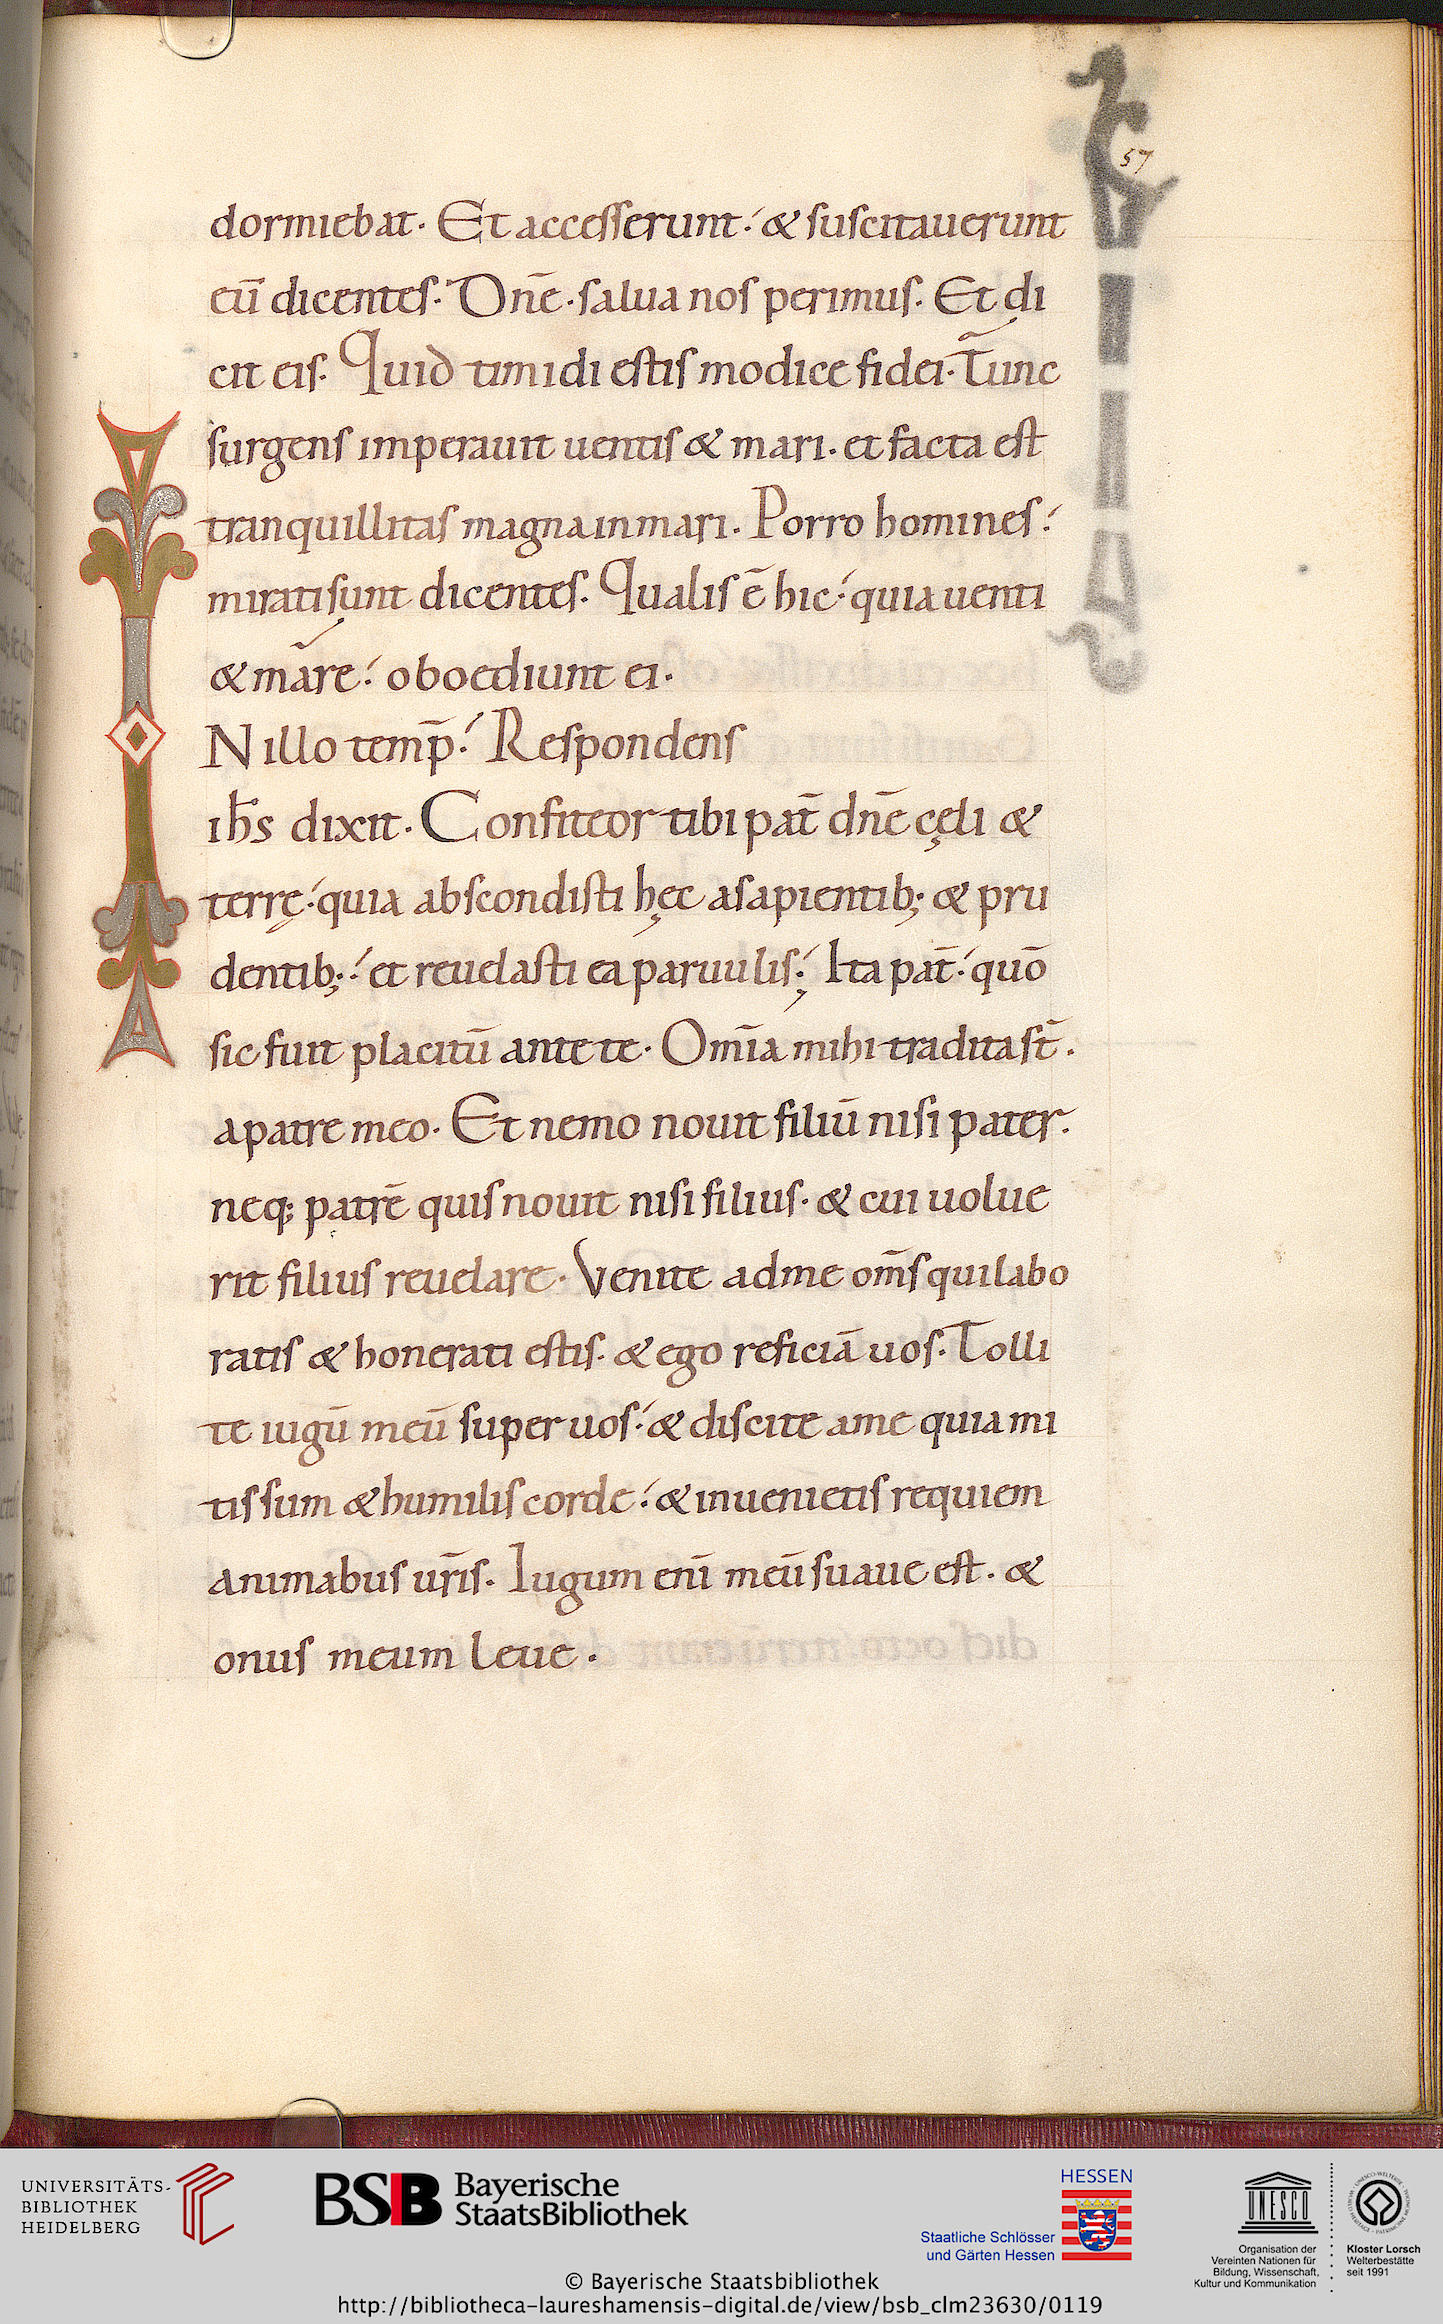 57
dormiebat. Et accesserunt; & suscitauerunt
eū dicentes. Dn̄e. salua nos perimus. Et di
cit eis. Quid timidi estis modice fidei. Tunc
surgens imperauit uentis & mari. et facta est
tranquillitas magna in mari. Porro homines;
mirati sunt dicentes. Qualis ē hic; quia uenti
& mare; oboediunt ei.
IN illo temp̄; Respondens
ih̄s dixit. Confiteor tibi pat̄ dn̄e cęli &
terrę; quia abscondisti hęc a sapientib; & pru
dentib;; et reuelasti ea paruulis; Ita pat̄; quō
sic fuit placitū ante te. Om̄ia mihi tradita st̄.
a patre meo. Et nemo nouit filiū nisi pater.
neq; patrē quis nouit nisi filius. & cui uolue
rit filius reuelare. Venite ad me om̄s qui labo
ratis & honerati estis. & ego reficiā uos. Tolli
te iugū meū super uos; & discite a me quia mi
tis sum & humilis corde; & inuenietis requiem
animabus ur̄is. Iugum eni̅ meū suaue est. &
onus meum leue.
UNIVERSITÄTS-
BIBLIOTHEK
HEIDELBERG
BSB Bayerische
StaatsBibliothek
HESSEN
Staatliche Schlösser
und Gärten Hessen
UNESCO
Organisation der
Vereinten Nationen für
Bildung, Wissenschaft,
Kultur und Kommunikation
Kloster Lorsch
Welterbestätte
seit 1991
© Bayerische Staatsbibliothek
http://bibliotheca-laureshamensis-digital.de/view/bsb_clm23630/0119